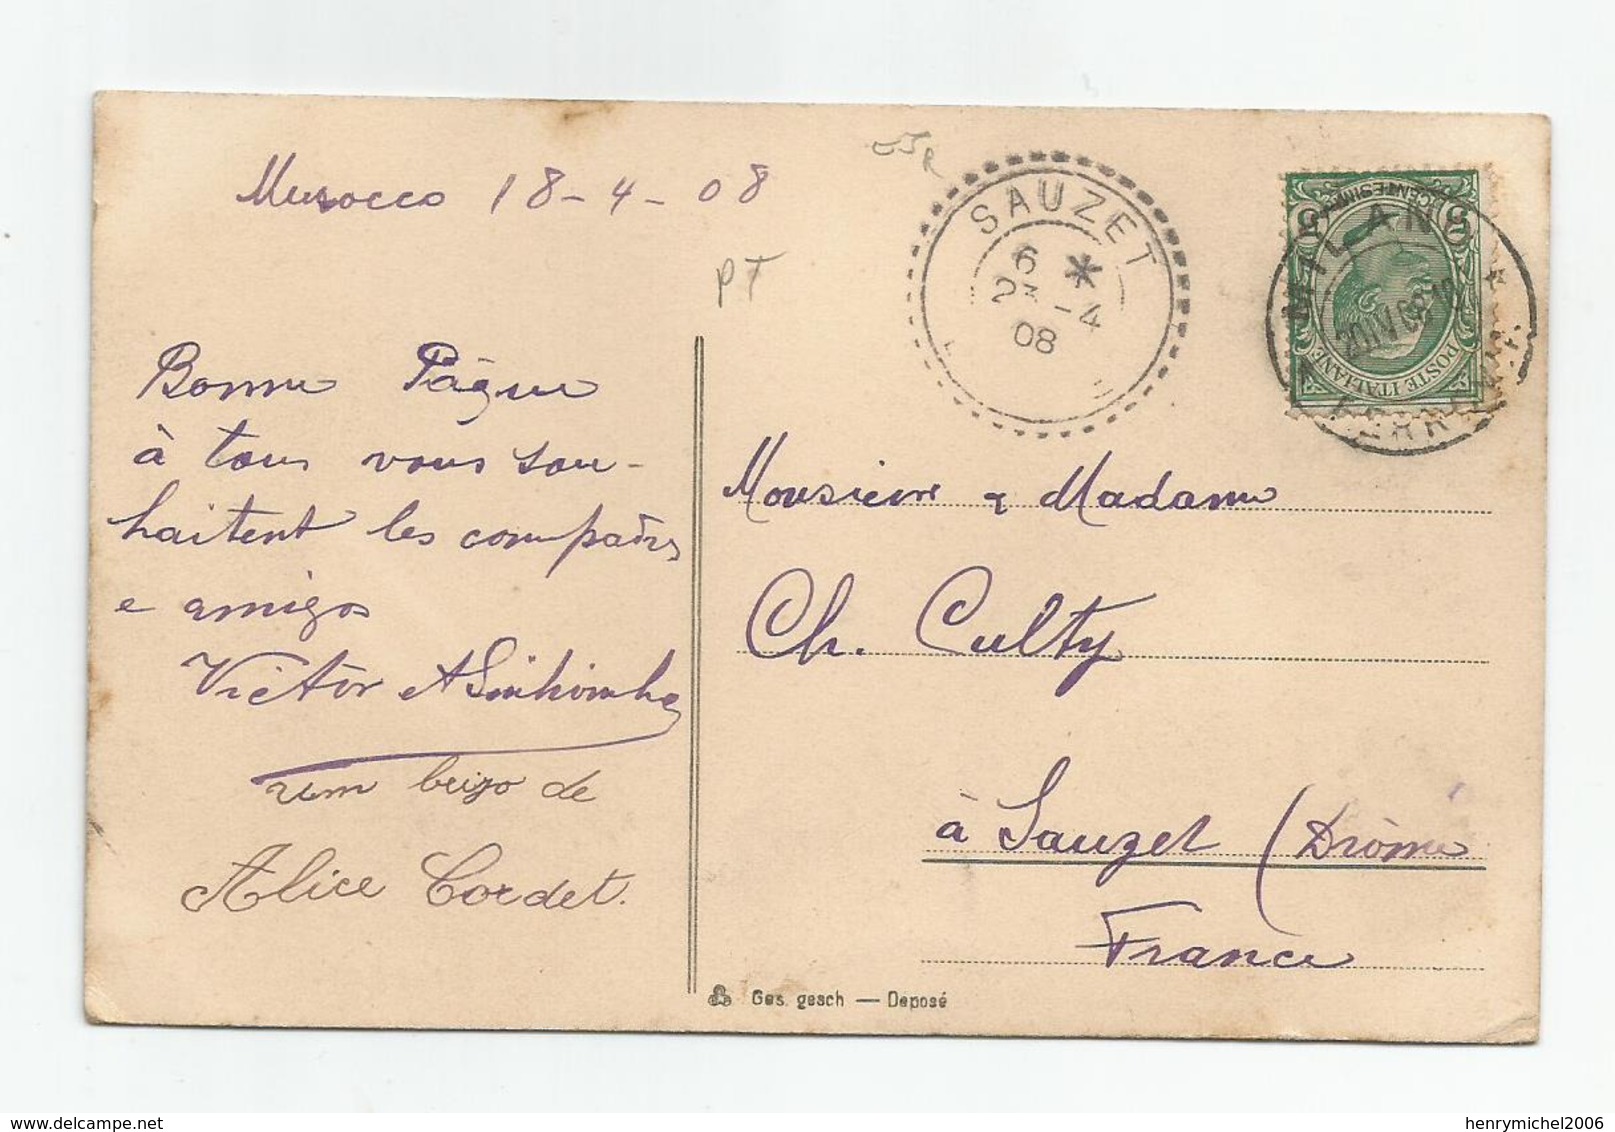 Murocco 18-4-08
Bonne Pâque
à tous vous sou-
haitent les compadres
e amigos
Victor et
um beizo de
Alice Cordet.
PT
SAUZET
6 *
23 -4
08
CENTESIMI
POSTE ITALIANE
MILANO
FERROVIA
Monsieur & Madame
Ch. Culty
à Sauzet (Drôme
France
Ges. gesch — Deposé
henrymichel2006